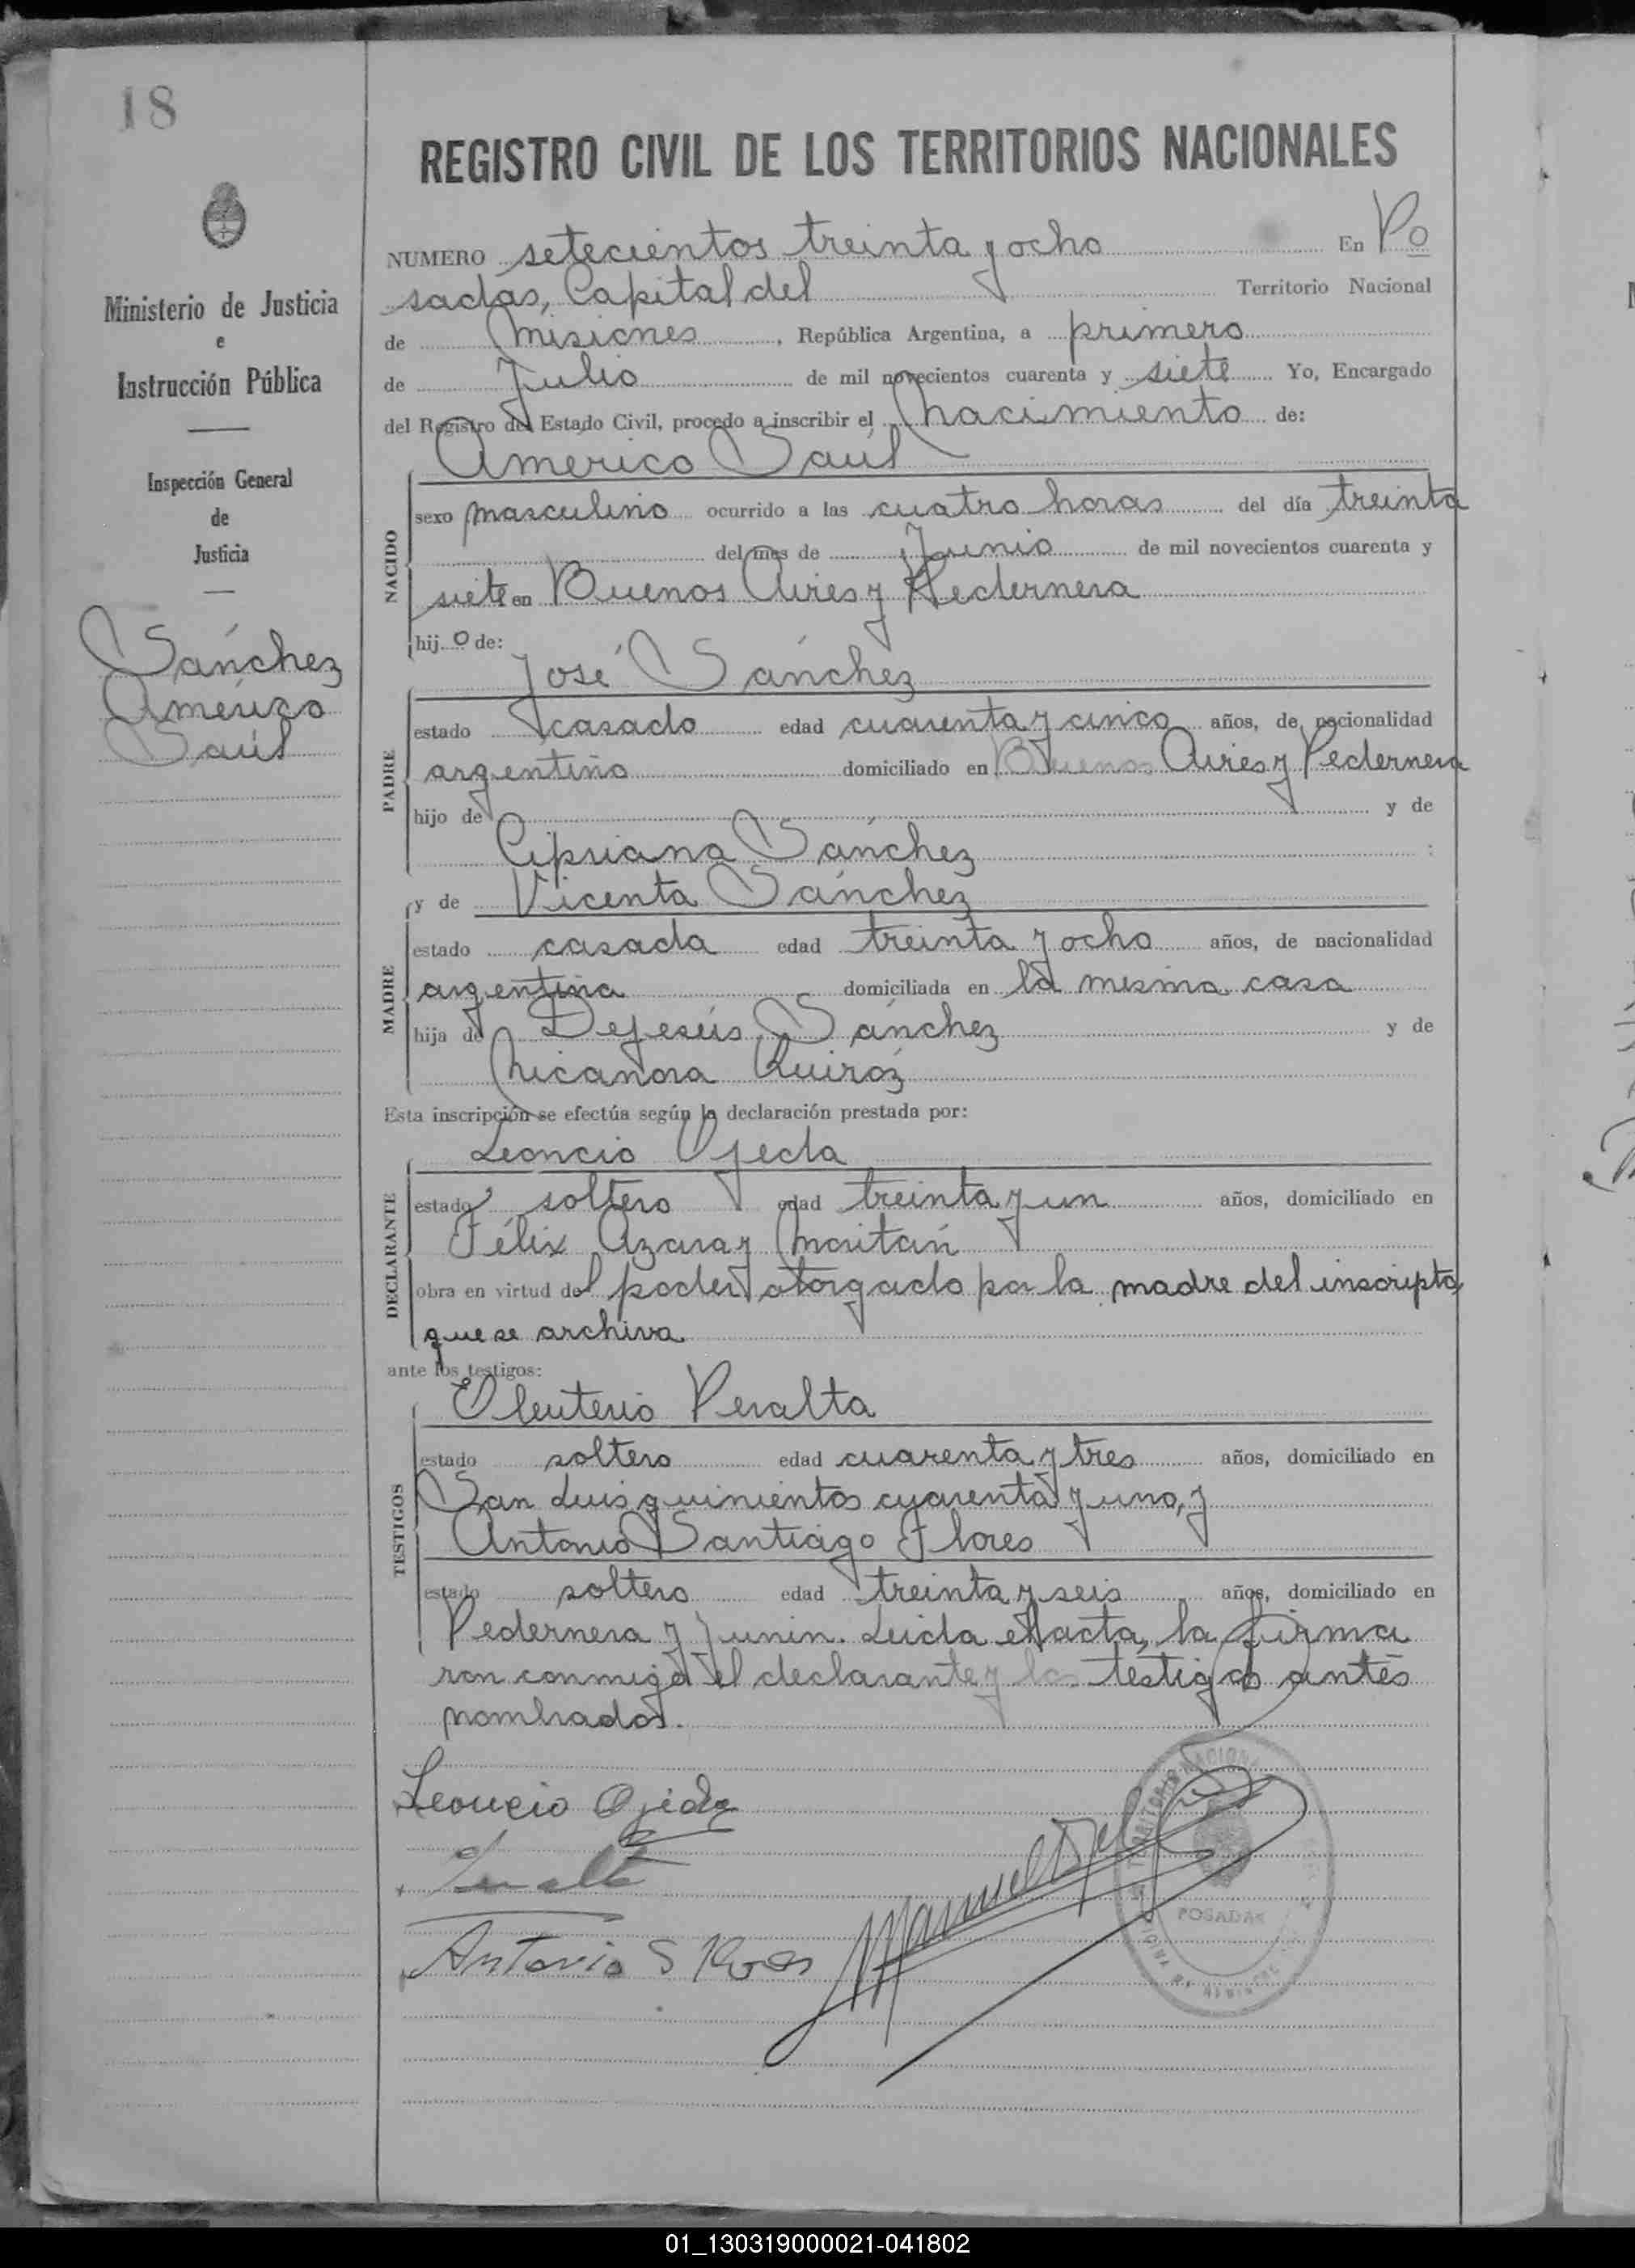 18
Ministerio de Justicia
e
Instrucción Pública
Inspección General
de
Justicia
Sánchez
Américo
Saúl
REGISTRO CIVIL DE LOS TERRITORIOS NACIONALES
NUMERO setecientos treinta y ocho En Po
sadas, Capital del Territorio Nacional
de Misiones, República Argentina, a primero
de Julio de mil novecientos cuarenta y siete Yo, Encargado
del Registro del Estado Civil, procedo a inscribir el nacimiento de:
Americo Saúl
NACIDO
sexo masculino ocurrido a las cuatro horas del día treinta
del mes de Junio de mil novecientos cuarenta y
siete en Buenos Aires y Pedernera
hijo de:
José Sánchez
PADRE
estado casado edad cuarenta y cinco años, de nacionalidad
argentino domiciliado en Buenos Aires y Pedernera
hijo de y de
Cipriana Sánchez
y de Vicenta Sánchez
MADRE
estado casada edad treinta y ocho años, de nacionalidad
argentina domiciliada en la misma casa
hija de Dejesús Sánchez y de
Nicanora Quiróz
Esta inscripción se efectúa según la declaración prestada por:
Leoncio Ojeda
DECLARANTE
estado soltero edad treinta y un años, domiciliado en
Félix Azara y Moritán
obra en virtud del poder otorgado por la madre del inscripto,
que se archiva
ante los testigos:
Eleuterio Peralta
TESTIGOS
estado soltero edad cuarenta y tres años, domiciliado en
San Luis quinientos cuarenta y uno, y
Antonio Santiago Flores
estado soltero edad treinta y seis años, domiciliado en
Pedernera y Junin. Leida el acta, la firma
ron conmigo el declarante y los testigos antes
nombrados.
Leoncio Ojeda
Peralta
Antonio S Flores
Manuel
POSADAS
01_130319000021-041802